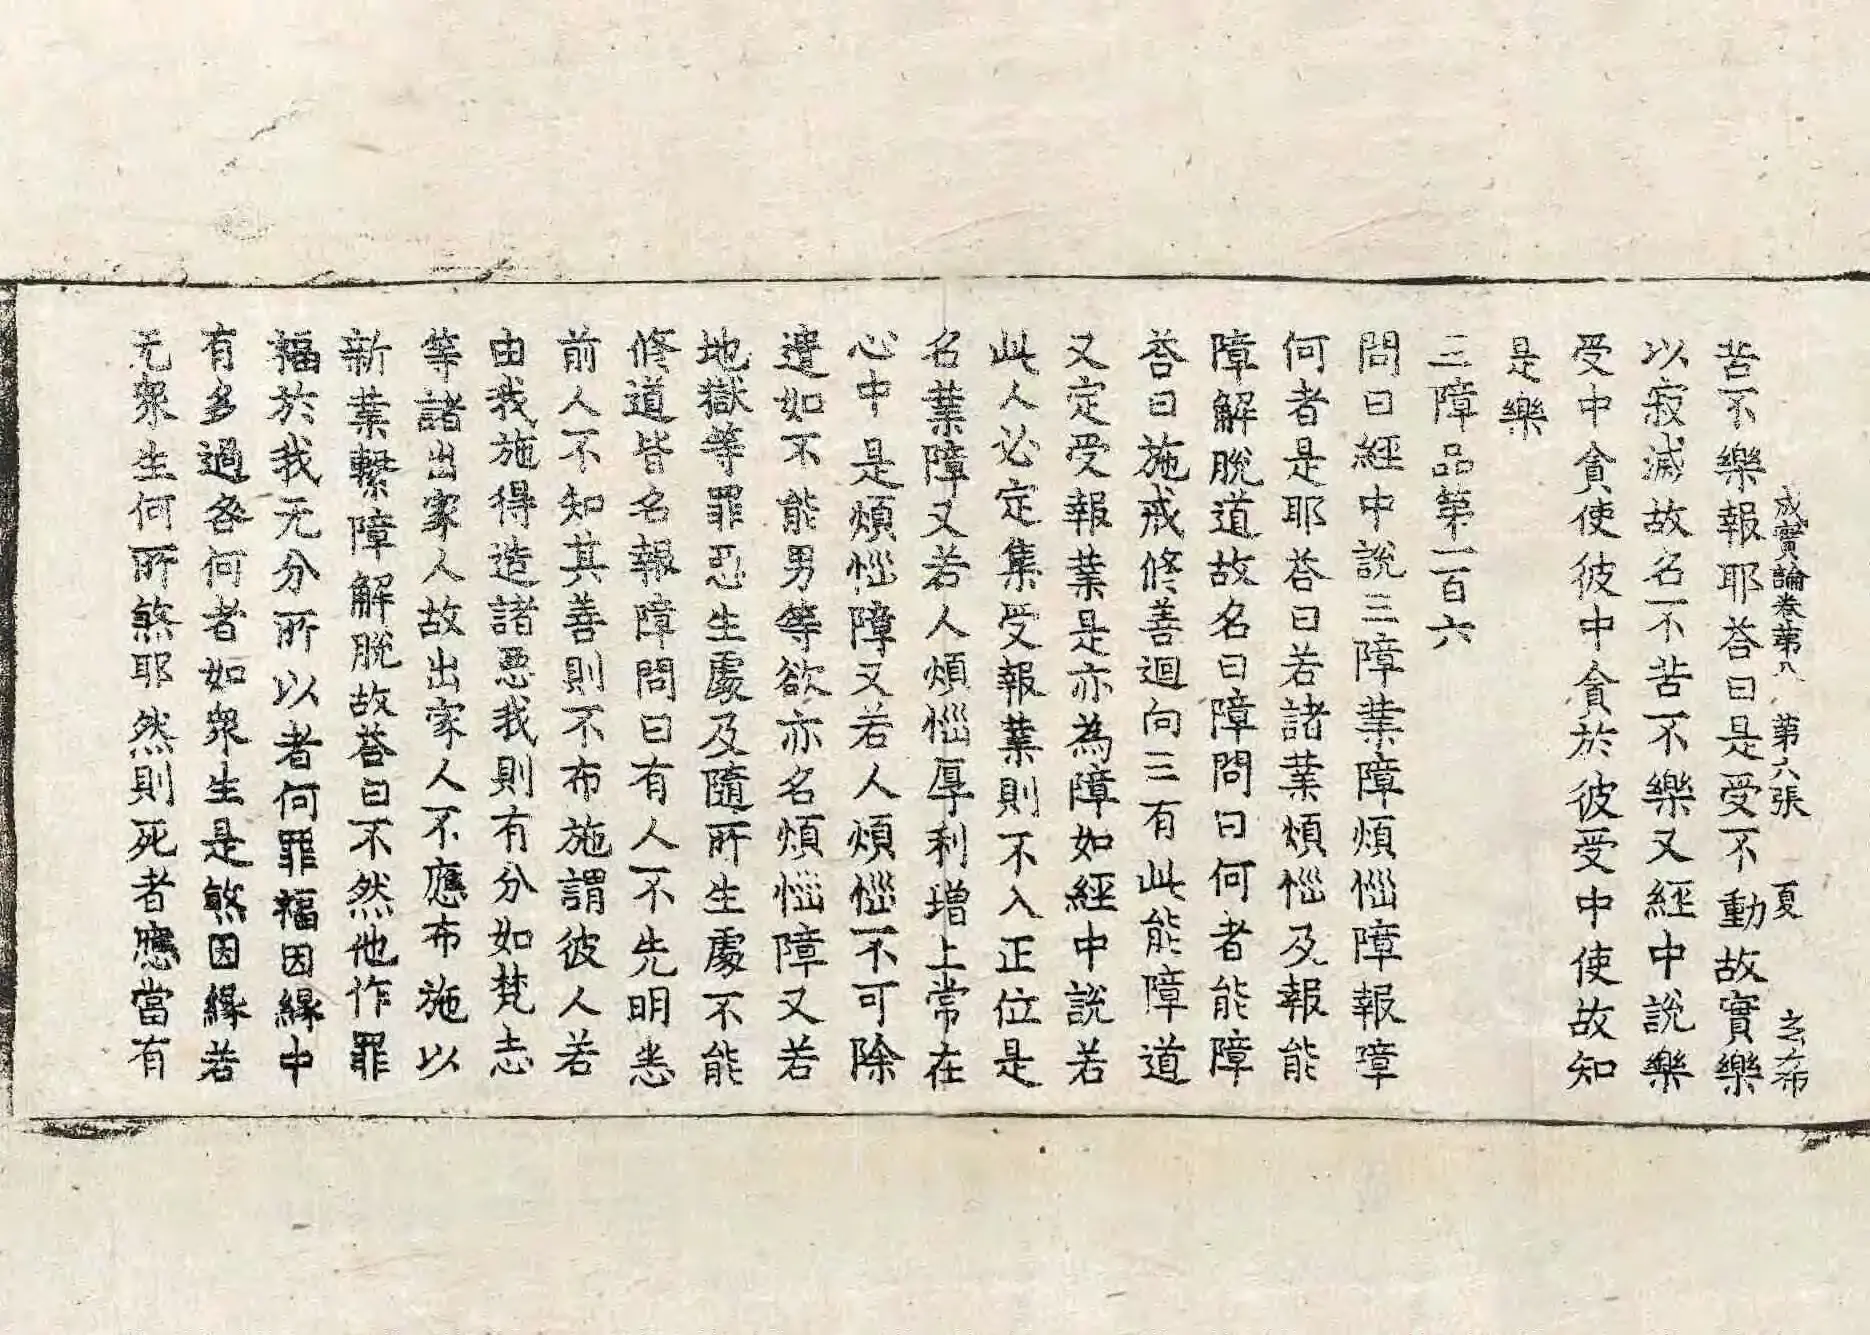 成實論卷第八 第六張 夏
苦不樂報耶荅曰是受不動故實樂
以寂滅故名不苦不樂又經中說樂
受中貪使彼中貪於彼受中使故知
是樂
三障品第一百六
問曰經中說三障業障煩惱障報障
何者是耶荅曰若諸業煩惱及報能
障解脫道故名曰障問曰何者能障
荅曰施戒修善迴向三有此能障道
又定受報業是亦為障如經中說若
此人必定集受報業則不入正位是
名業障又若人煩惱厚利增上常在
心中是煩惱障又若人煩惱不可除
遣如不能男等欲亦名煩惱障又若
地獄等罪惡生處及隨所生處不能
修道皆名報障問曰有人不先明悉
前人不知其善則不布施謂彼人若
由我施得造諸惡我則有分如梵志
等諸出家人故出家人不應布施以
新業繫障解脫故荅曰不然他作罪
福於我无分所以者何罪福因緣中
有多過咎何者如衆生是煞因緣若
无衆生何所煞耶然則死者應當有